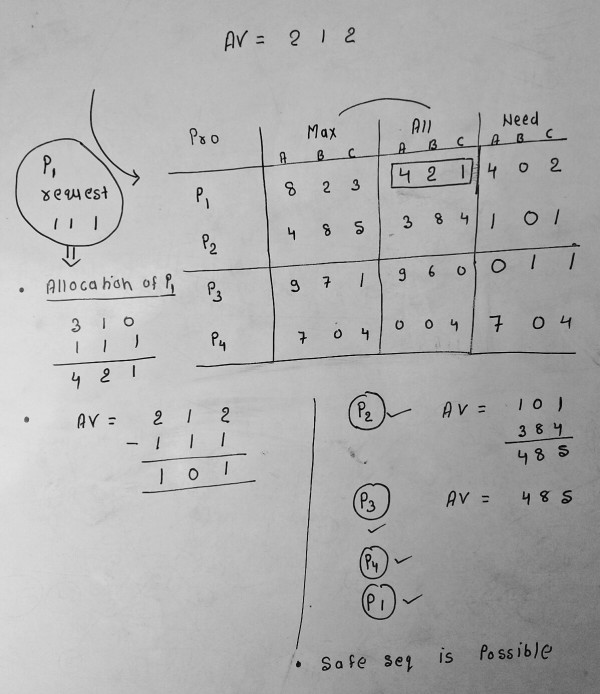 AV = 2 1 2
Pro Max All Need
A B C A B C A B C
P1 8 2 3 4 2 1 4 0 2
P2 4 8 5 3 8 4 1 0 1
P3 9 7 1 9 6 0 0 1 1
P4 7 0 4 0 0 4 7 0 4
P1
request
1 1 1
⇓
• Allocation of P1
3 1 0
1 1 1
4 2 1
• AV = 2 1 2
- 1 1 1
1 0 1
P2 ✓ AV = 1 0 1
3 8 4
4 8 5
P3 AV = 4 8 5
✓
P4 ✓
P1 ✓
• Safe seq is Possible